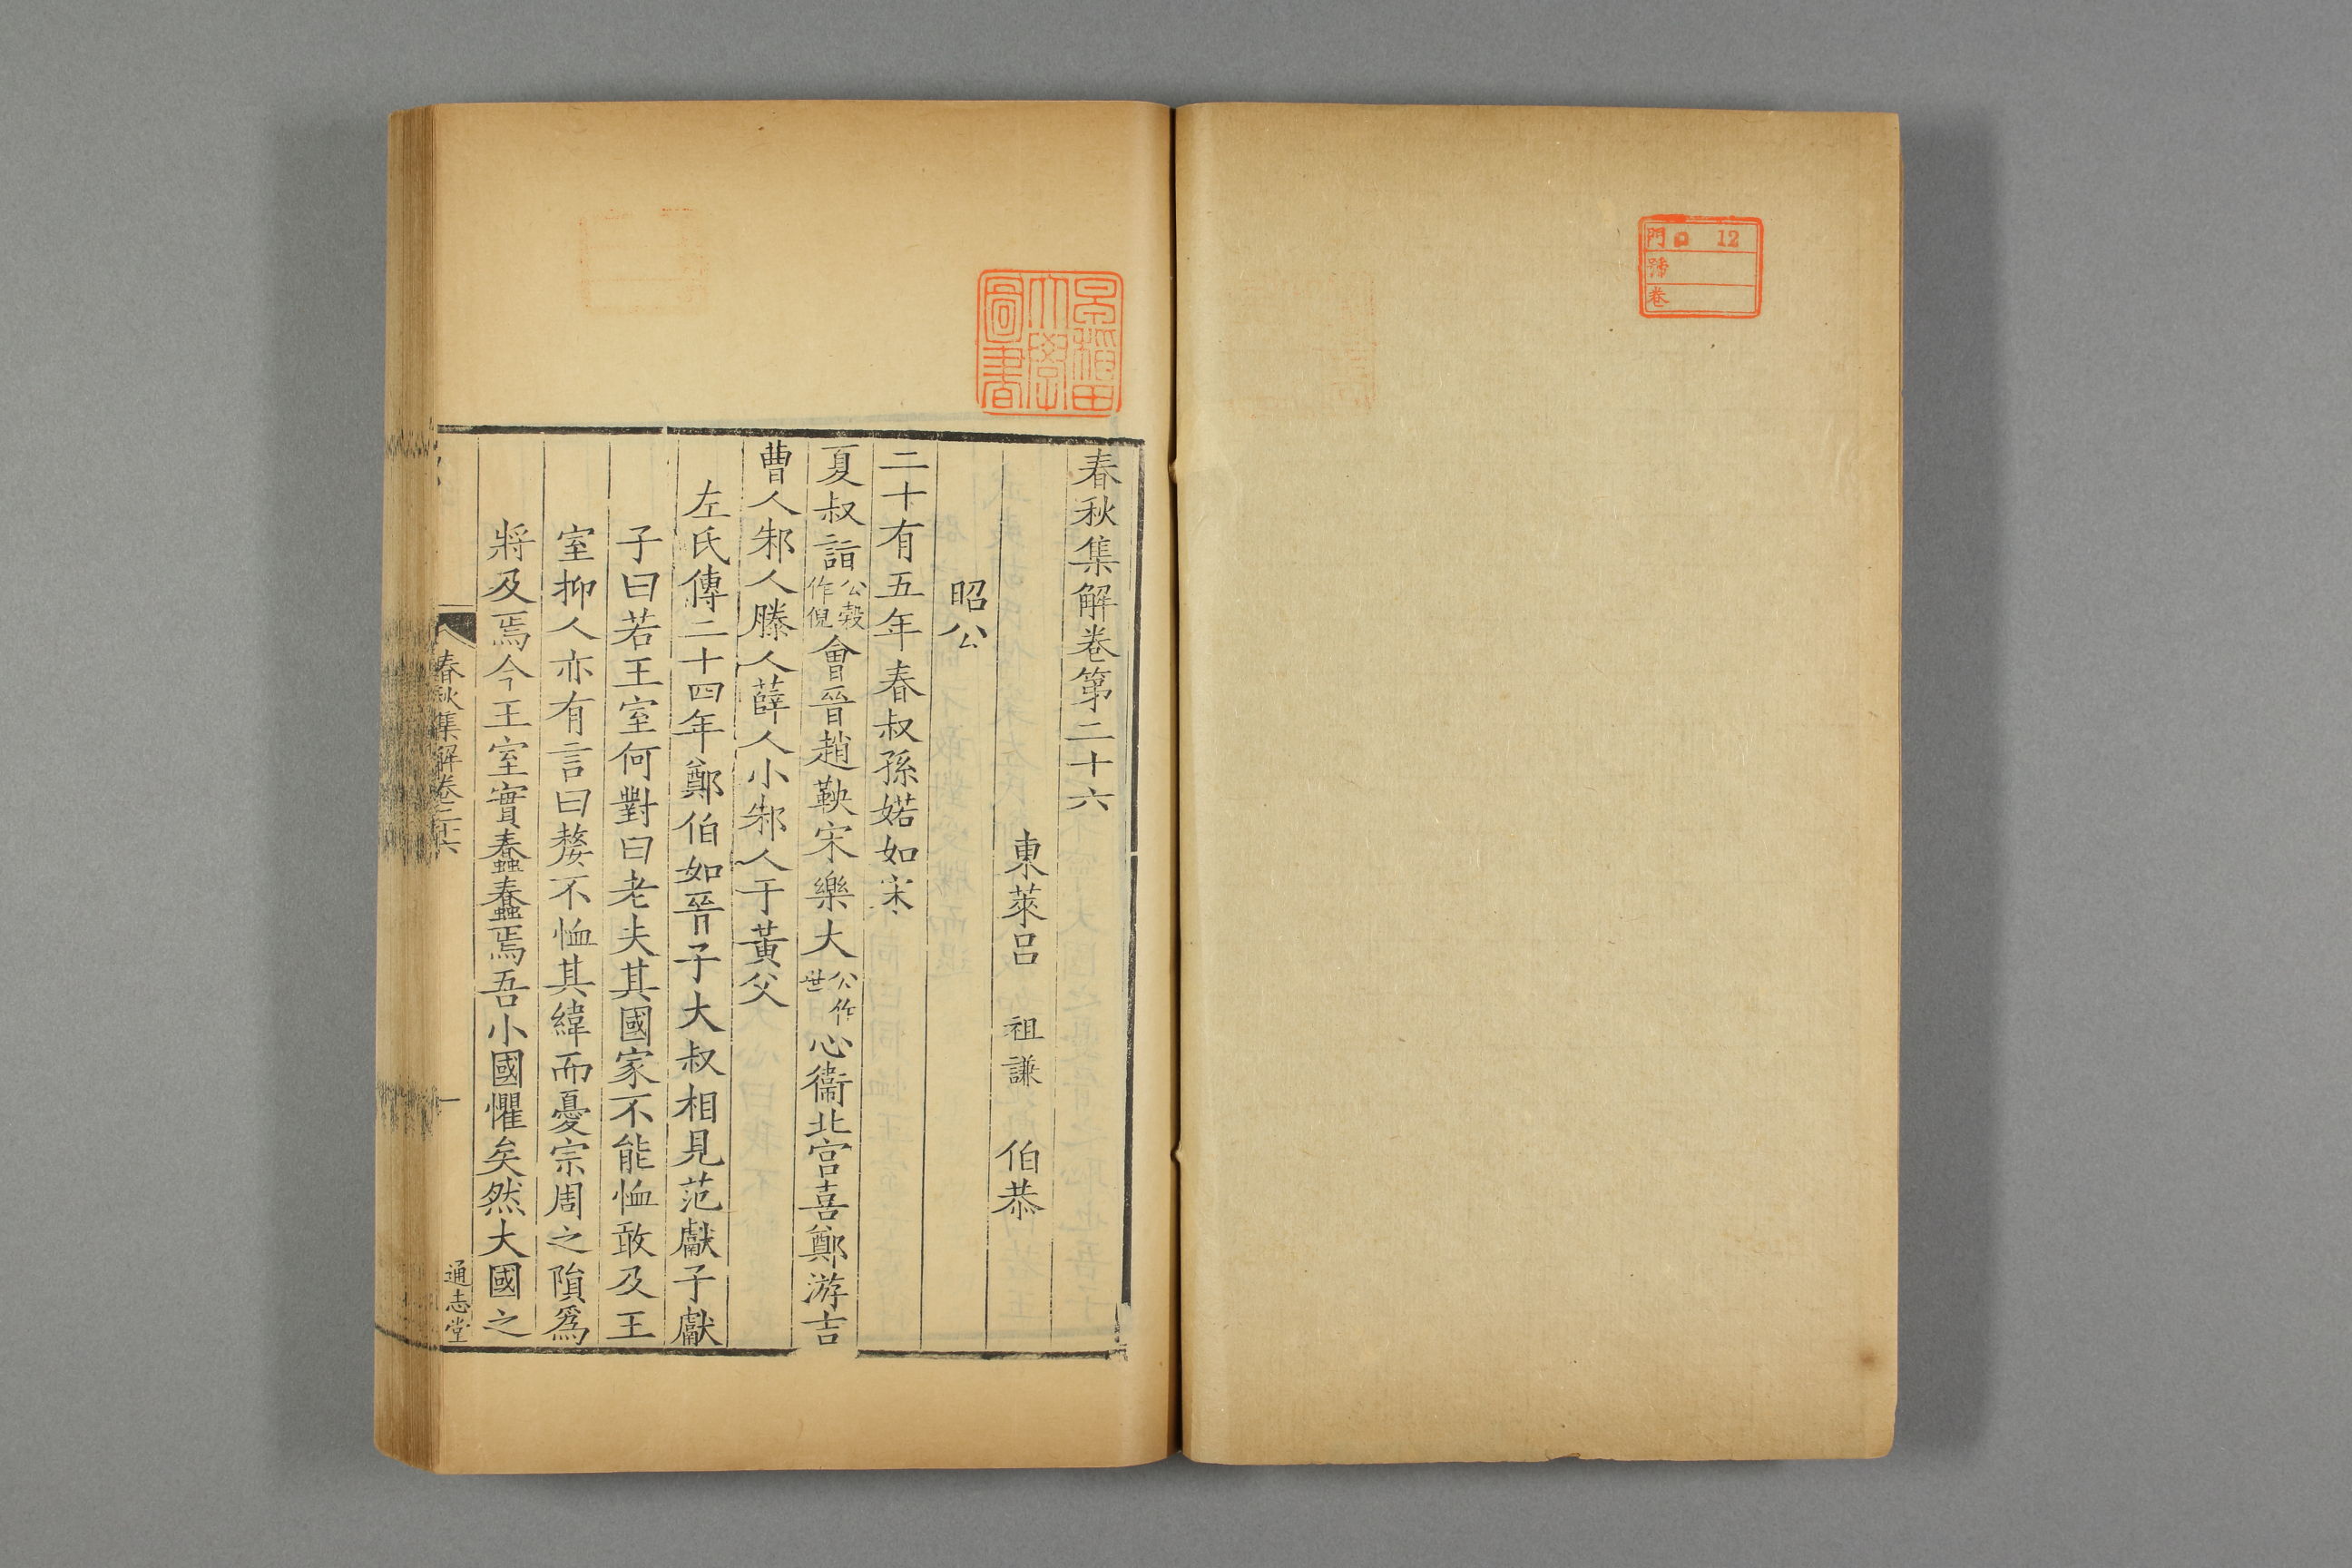 門 ロ 12
號
卷
早稲田大學圖書
春秋集解卷第二十六
東萊呂 祖謙 伯恭
昭公
二十有五年春叔孫婼如宋
夏叔詣公穀作倪會晉趙鞅宋樂大公作世心衞北宮喜鄭游吉
曹人邾人滕人薛人小邾人于黃父
左氏傳二十四年鄭伯如晉子大叔相見范獻子獻
子曰若王室何對曰老夫其國家不能恤敢及王
室抑人亦有言曰嫠不恤其緯而憂宗周之隕爲
將及焉今王室實蠢蠢焉吾小國懼矣然大國之
春秋集解卷二十六
一
通志堂